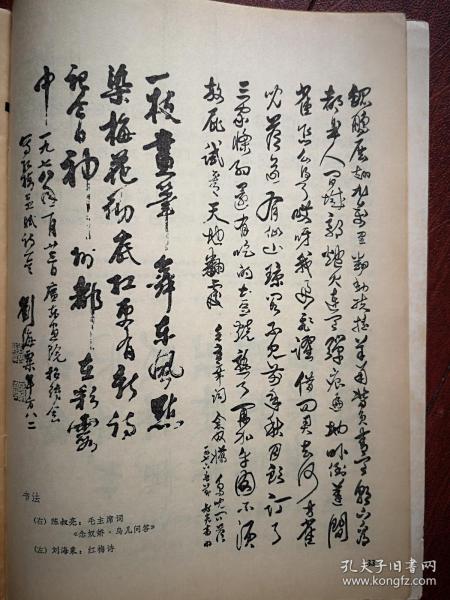 鲲鹏展翅九万里翻动扶摇羊角背负青天朝下看
都是人间城郭炮火连天弹痕遍地吓倒蓬间
雀怎么得了哎呀我要飞跃借问君去何方雀
儿答道有仙山琼阁不见前年秋月朗订了
三家条约还有吃的土豆烧熟了再加牛肉不须
放屁试看天地翻覆 毛主席词念奴娇鸟儿问答
一枝畫筆舞东風點
染梅花彻底红更有新诗
记今日神州都在彩雲
中 一九七六年一月廿三日广东画院招待会
劉海粟年方八二
书法
(右) 陈叔亮: 毛主席词
《念奴娇·鸟儿问答》
(左) 刘海粟: 红梅诗
33
孔夫子旧书网
book.kongfz.com